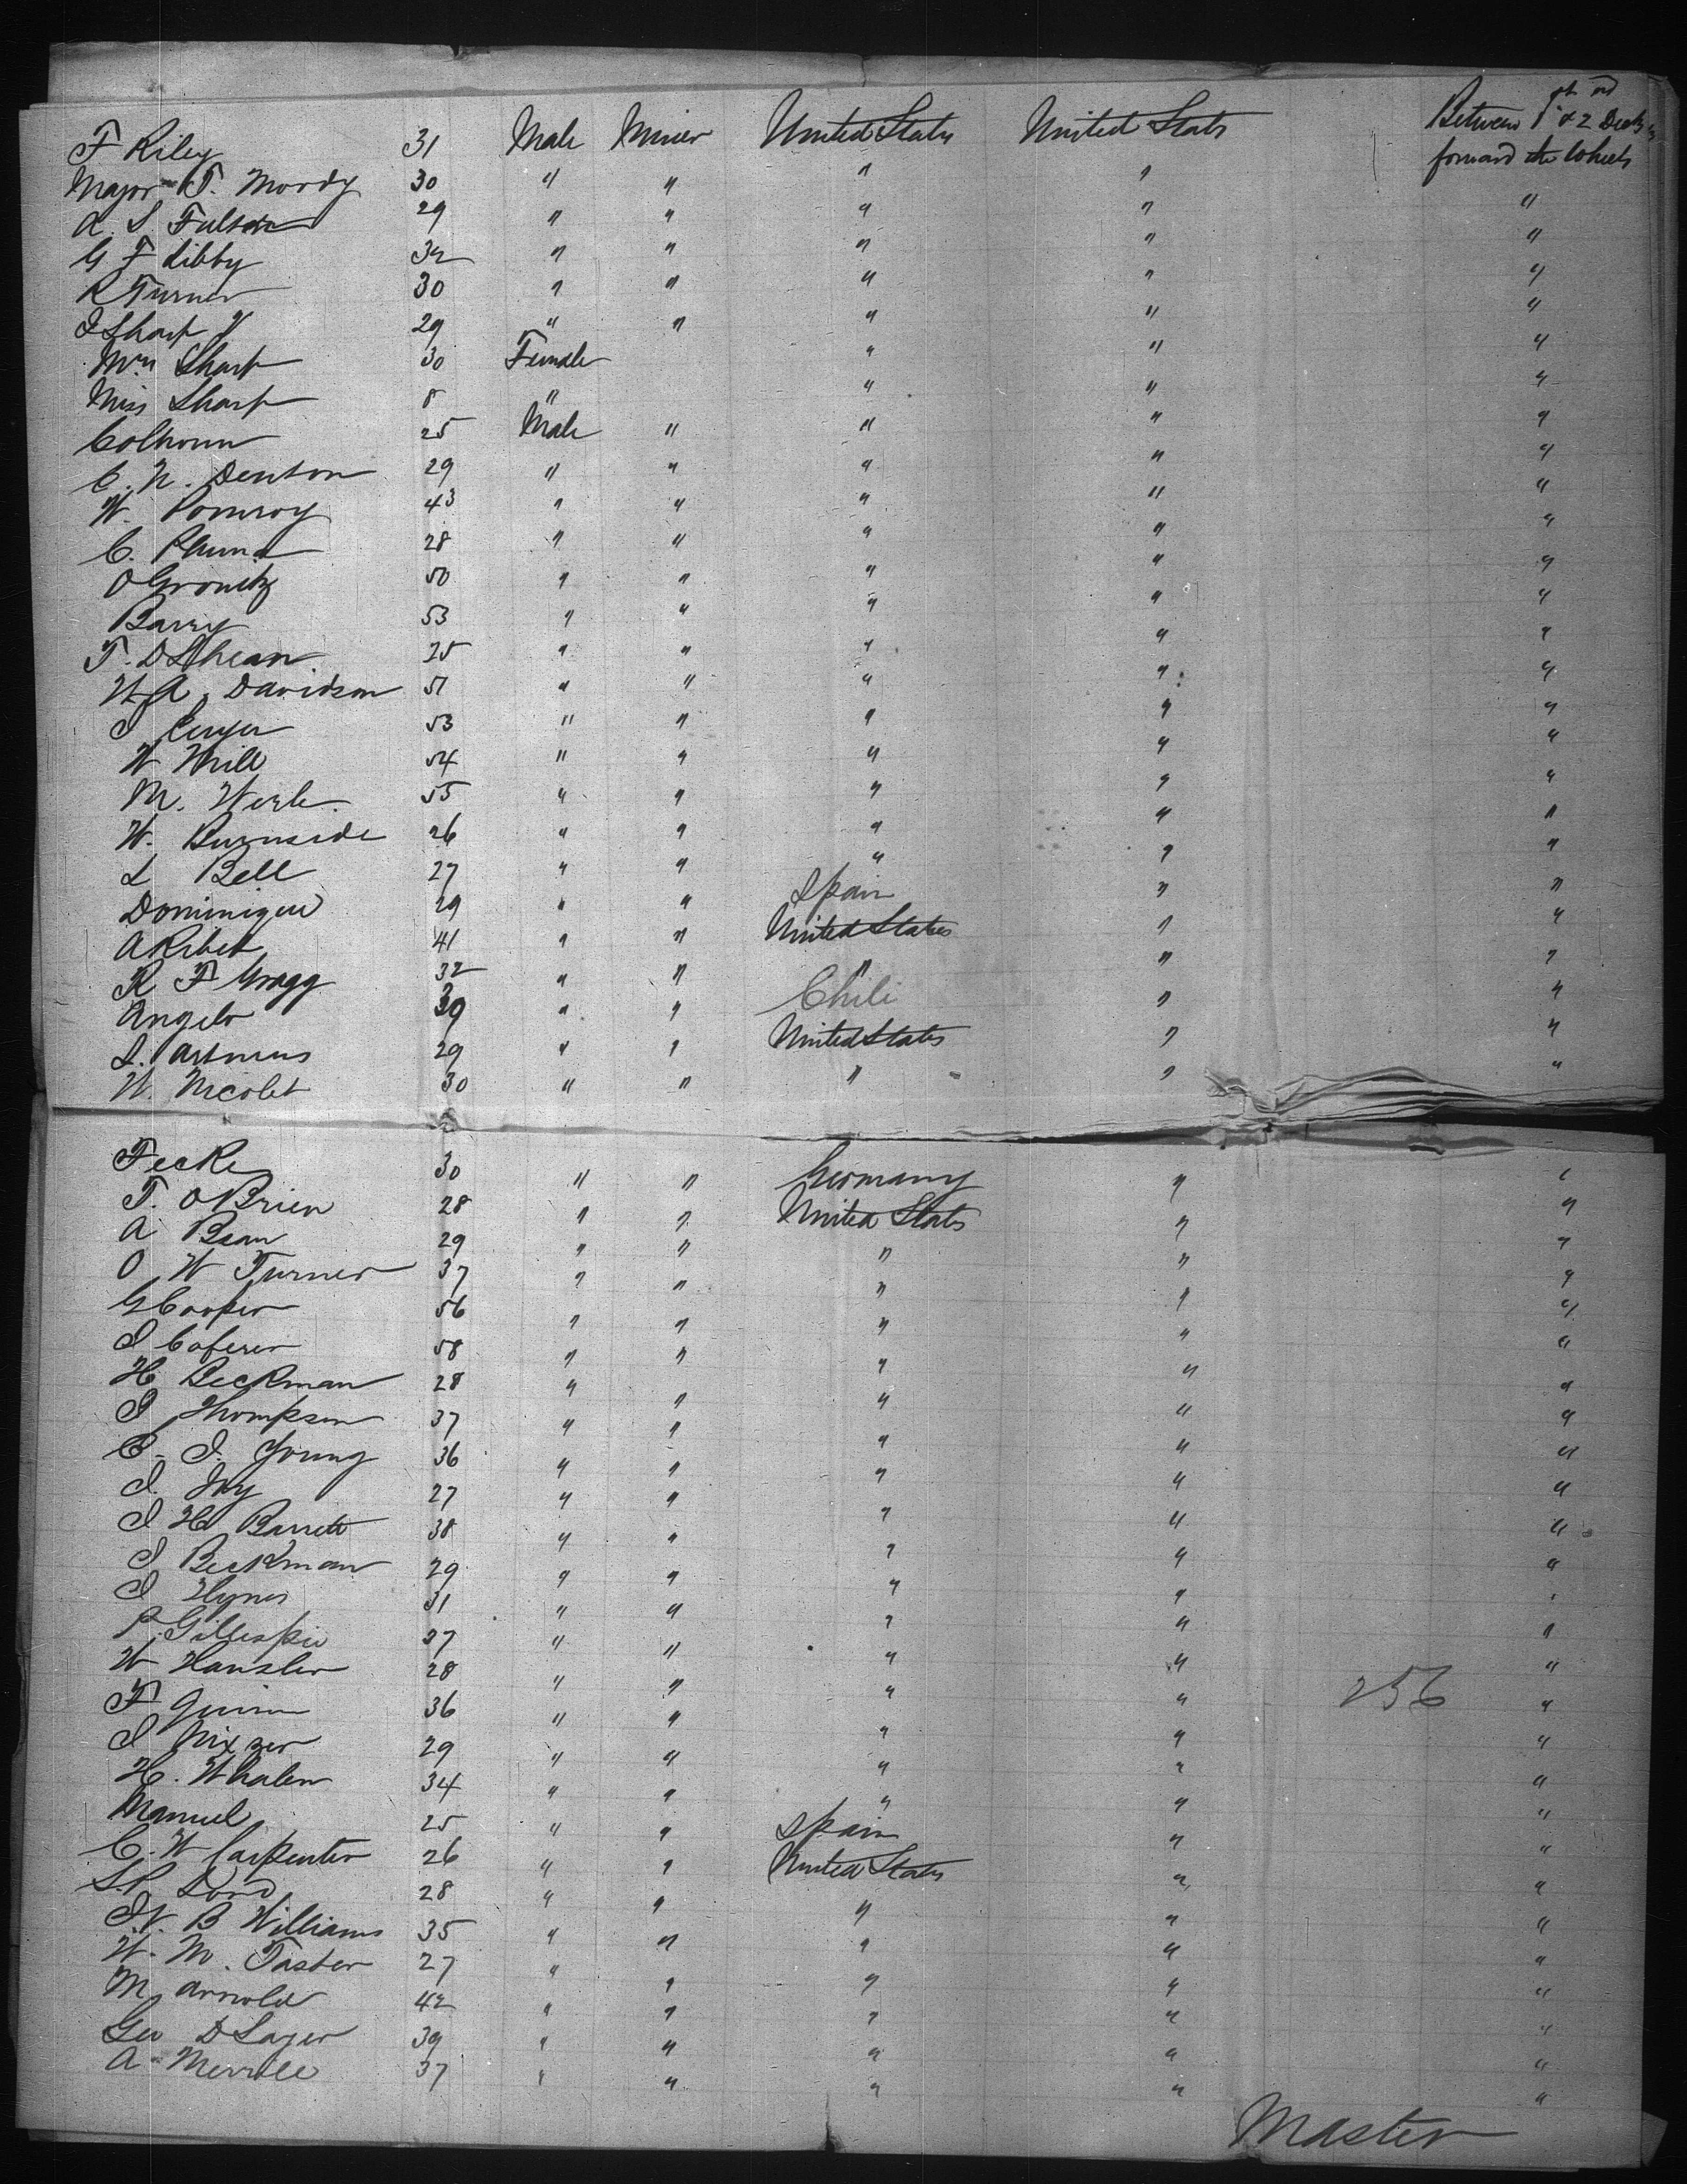 F Riley 31 Male Miner United States United States Between 1st & 2nd Decks
forward the Wheels
Major T. Moody 30 " " " " "
A. S. Fulson 29 " " " " "
G F Libby 32 " " " " "
R Turner 30 " " " " "
I Sharp 29 " " " " "
Mrs Sharp 30 Female " " "
Miss Sharp 8 " " " "
Colhoun 25 Male " " " "
C. N. Denton 29 " " " " "
W. Pomroy 43 " " " " "
C. 28 " " " " "
50 " " " " "
Barry 53 " " " " "
T. D Shean 25 " " " " "
W A. Davidson 51 " " " " "
I 53 " " " " "
W Mill 54 " " " " "
M. Werle 55 " " " " "
W. Burnside 26 " " " " "
L Bell 27 " " " " "
Dominique 29 " " Spain " "
A Ribet 41 " " United States " "
R F Gragg 32 " " " " "
Angelo 39 " " Chili " "
L. Artmus 29 " " United States " "
W. Nicolet 30 " " " " "
Fecke 30 " " Germany " "
T. O Brien 28 " " United States " "
A Bean 29 " " " " "
O W Turner 37 " " " " "
G Cooper 56 " " " " "
I Coferer 58 " " " " "
H Beckman 28 " " " " "
I Thompson 37 " " " " "
C. I. Young 36 " " " " "
I. Ivy 27 " " " " "
I H Barrett 38 " " " " "
I Beckman 29 " " " " "
I Hynes 31 " " " " "
P. Gillespie 27 " " " " "
W Hansler 28 " " " " "
F Quinn 36 " " " " 256 "
I Nixzer 29 " " " " "
H. Whalen 34 " " " " "
Manuel 25 " " Spain " "
C. W Carpenter 26 " " United States " "
S. P. Lord 28 " " " " "
I. V. B Williams 35 " " " " "
W. M. Taster 27 " " " " "
M Arnold 42 " " " " "
Geo D Sager 39 " " " " "
A Merrill 37 " " " " "
Master